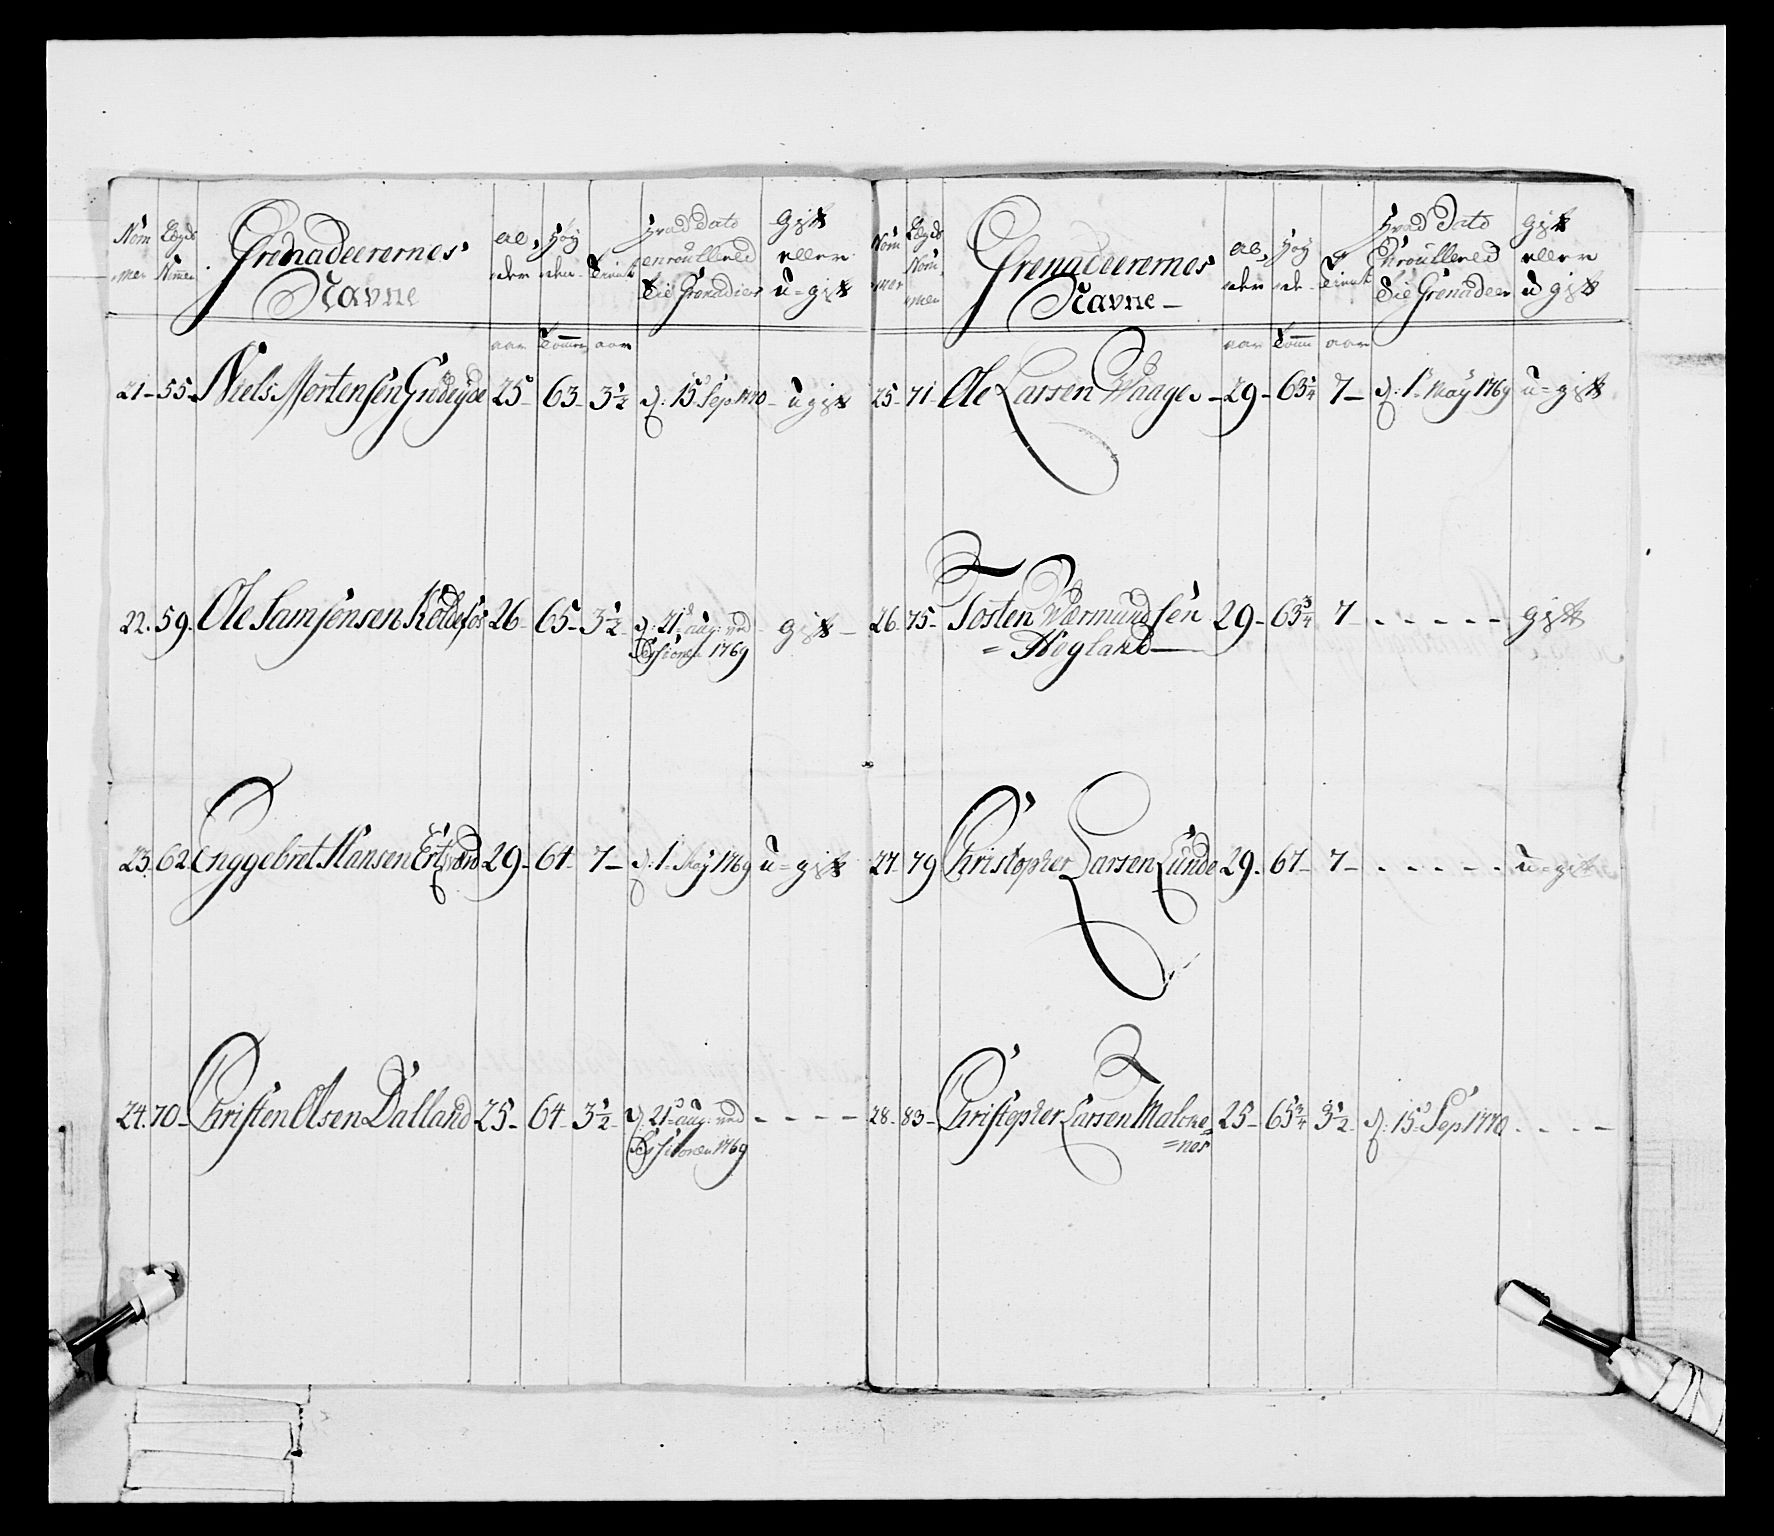 Nom
mer
Lægds
Numer
Grenadeerernes
Navne
al,
der
Høÿ
den
Tient
Hvad Dato
enroulleret
til Grenadier
Gift
eller
u=gift
aar
Tomer
aar
21- 55- Niels Mortensen 25 63- 3½ d: 15 Sep 1770- ugift
22. 59. Ole Samsonsen 26- 65- 3½- d: 21 aug: ved gift-
Sessionen 1769
23. 62 Enggebret Hansen 29- 64- 7- d: 1 Maÿ 1769 u=gift
24. 70- Christen Olsen Dalland 25- 64- 3½- d: 21 aug: ved - - - -
Sessionen 1769
Nom
mer
Lægds
Nom
mer
Grenadeerernes
Navne-
al,
der
Høÿ
de
Tient
Hvad Dato
Enroulleret
til Grenadeer
gift
eller
u gift
aar
Tomer
aar
25- 71- Ole Larsen Waage- 29- 63¼ 7- d: 1 Maÿ 1769 u=gift
26- 75- Tosten Wermundsen 29- 63¾ 7- - - - - - gift
=Hogland-
27- 79 Christopher Larsen Lunde 29. 67- 7- - - - - - u=gift
28- 83- Christopher Larsen Malone= 25- 65¾ 3½ d: 15 Sep 1770 - - - -
=nes